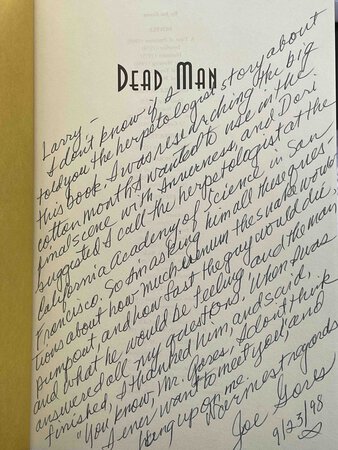 DEAD MAN
Larry –
I don't know if I
told you the herpetologist story about
this book. I was researching the big
cotton mouth I wanted to use in the
final scene with Inverness, and Dori
suggested I call the herpetologist at the
California Academy of Science in San
Francisco. So I'm asking him all these ques-
tions about how much venum the snake would
pump out, and how fast the guy would die,
and what he would be feeling, and the man
answered all my questions. When I was
finished, I thanked him, and said,
"You know, Mr. Gores, I don't think
I ever want to meet you," and
hung up on me.
Warmest regards
Joe Gores
9/23/98